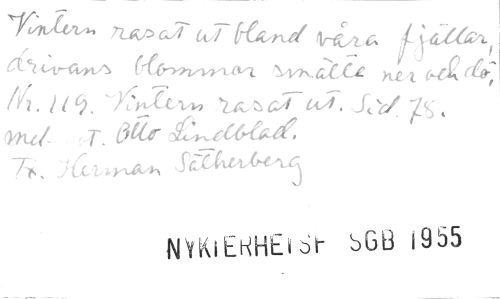 Vintern rasat ut bland våra fjällar,
drivans blommor smälta ner och dö,
Nr. 119. Vintern rasat ut. Sid. 78.
mel. t. Otto Lindblad.
Tx. Herman Sätherberg
NYKTERHETSF SGB 1955